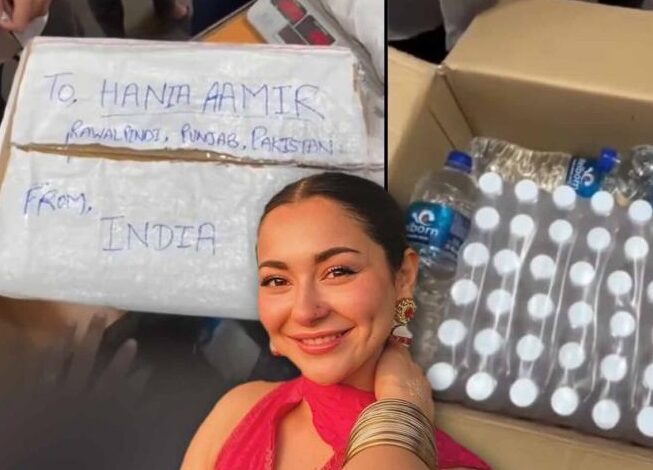 To, HANIA AAMIR
RAWALPINDI, PUNJAB, PAKISTAN.
FROM,
INDIA